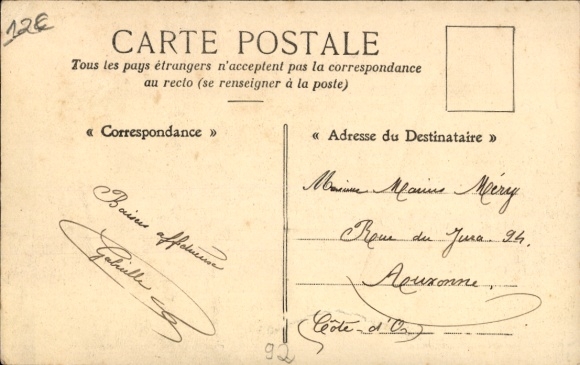 12€
CARTE POSTALE
Tous les pays étrangers n'acceptent pas la correspondance
au recto (se renseigner à la poste)
« Correspondance »
« Adresse du Destinataire »
Baisers affectueuse
Gabrielle
Marius Méry
Rue du Jura 94.
Auxonne.
(Côte-d'Or)
92